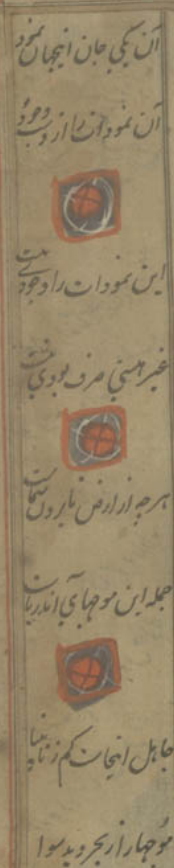 آن یکی جان اینجهان نمود
آن نمودات را ازو وجود
این نمودات را وجودی نیست
غیر هستی صرف بودی نیست
هرچه از ارض تا برون سماست
جمله این موجهای آن دریاست
جاهل اینجاست کم ز نابینا
موجها را ز بحر دید سوا